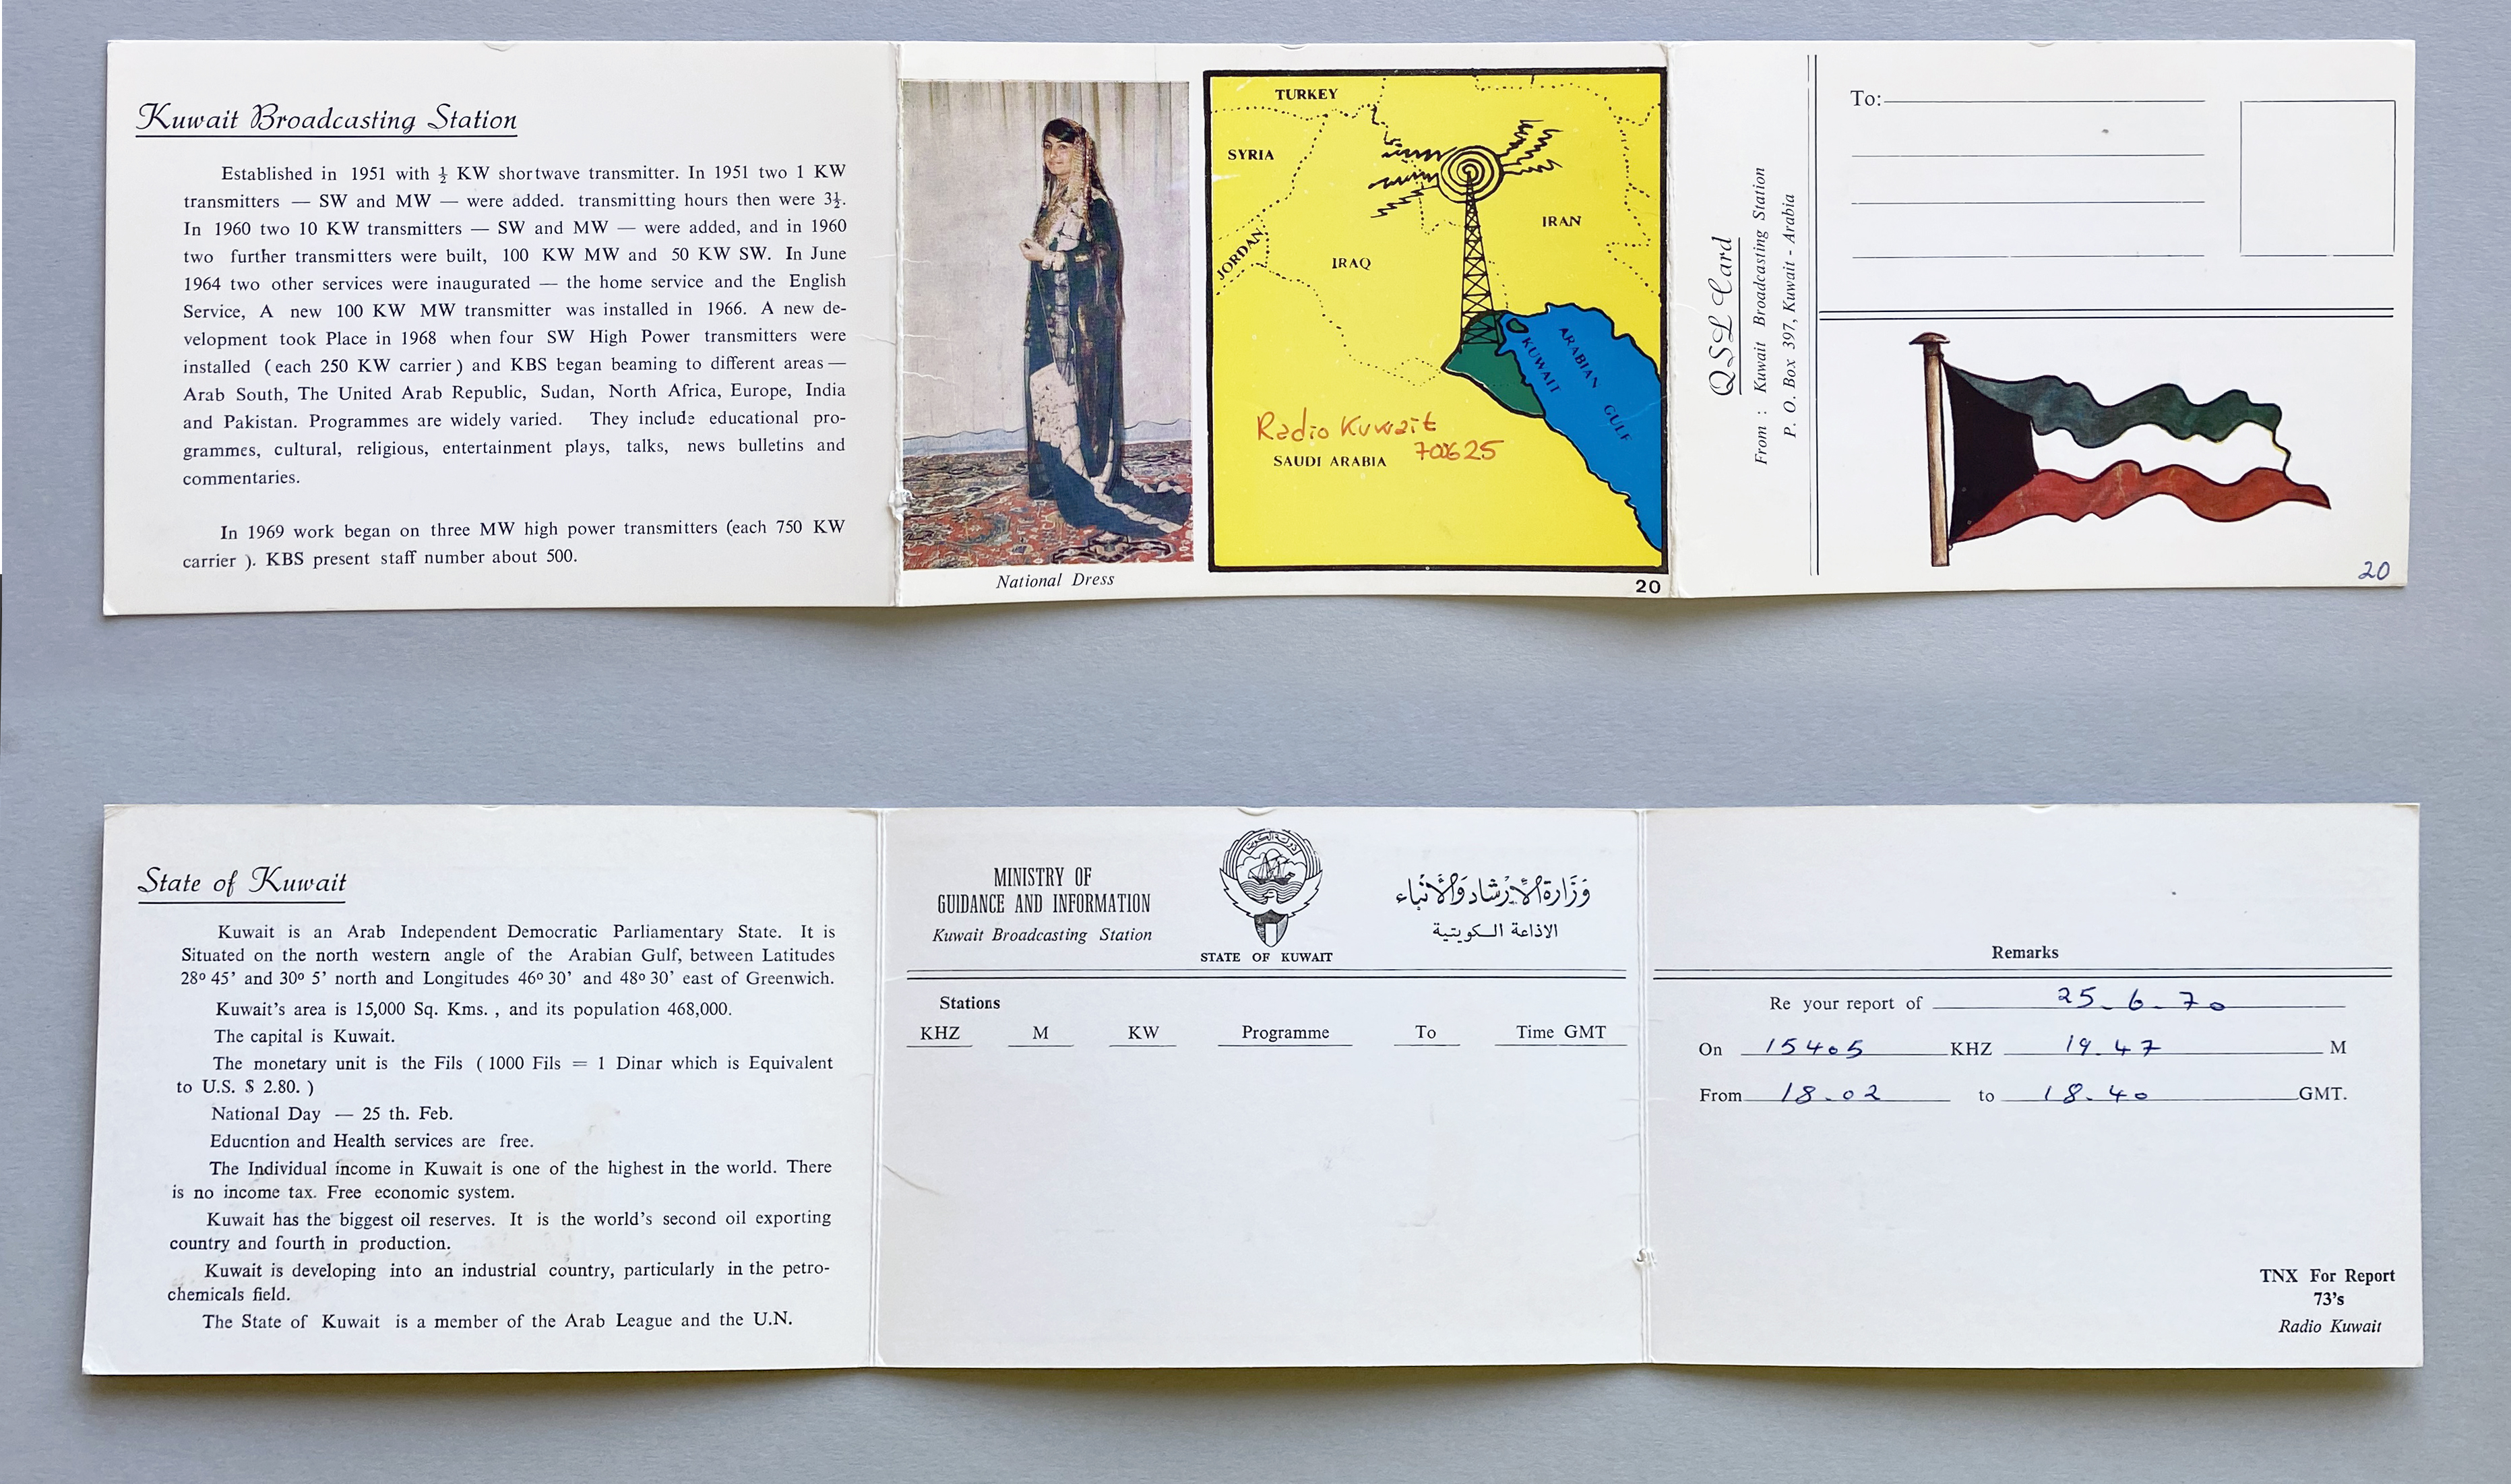 Kuwait Broadcasting Station
Established in 1951 with ½ KW shortwave transmitter. In 1951 two 1 KW
transmitters — SW and MW — were added. transmitting hours then were 3½.
In 1960 two 10 KW transmitters — SW and MW — were added, and in 1960
two further transmitters were built, 100 KW MW and 50 KW SW. In June
1964 two other services were inaugurated — the home service and the English
Service, A new 100 KW MW transmitter was installed in 1966. A new de-
velopment took Place in 1968 when four SW High Power transmitters were
installed (each 250 KW carrier) and KBS began beaming to different areas —
Arab South, The United Arab Republic, Sudan, North Africa, Europe, India
and Pakistan. Programmes are widely varied. They include educational pro-
grammes, cultural, religious, entertainment plays, talks, news bulletins and
commentaries.
In 1969 work began on three MW high power transmitters (each 750 KW
carrier ). KBS present staff number about 500.
National Dress
TURKEY
SYRIA
JORDAN
IRAQ
IRAN
KUWAIT
ARABIAN GULF
Radio Kuwait
700625
SAUDI ARABIA
20
QSL Card
From : Kuwait Broadcasting Station
P. O. Box 397, Kuwait - Arabia
To:
20
State of Kuwait
Kuwait is an Arab Independent Democratic Parliamentary State. It is
Situated on the north western angle of the Arabian Gulf, between Latitudes
28o 45’ and 30o 5’ north and Longitudes 46o 30’ and 48o 30’ east of Greenwich.
Kuwait’s area is 15,000 Sq. Kms. , and its population 468,000.
The capital is Kuwait.
The monetary unit is the Fils ( 1000 Fils = 1 Dinar which is Equivalent
to U.S. $ 2.80. )
National Day — 25 th. Feb.
Educntion and Health services are free.
The Individual income in Kuwait is one of the highest in the world. There
is no income tax. Free economic system.
Kuwait has the biggest oil reserves. It is the world’s second oil exporting
country and fourth in production.
Kuwait is developing into an industrial country, particularly in the petro-
chemicals field.
The State of Kuwait is a member of the Arab League and the U.N.
MINISTRY OF
GUIDANCE AND INFORMATION
Kuwait Broadcasting Station
دولة الكويت
STATE OF KUWAIT
وَزَارَة الإرْشاد وَالأنْبَاء
الاذاعة الـكويتية
Stations
KHZ M KW Programme To Time GMT
Remarks
Re your report of 25-6-70
On 15405 KHZ 19.47 M
From 18.02 to 18.40 GMT.
TNX For Report
73’s
Radio Kuwait